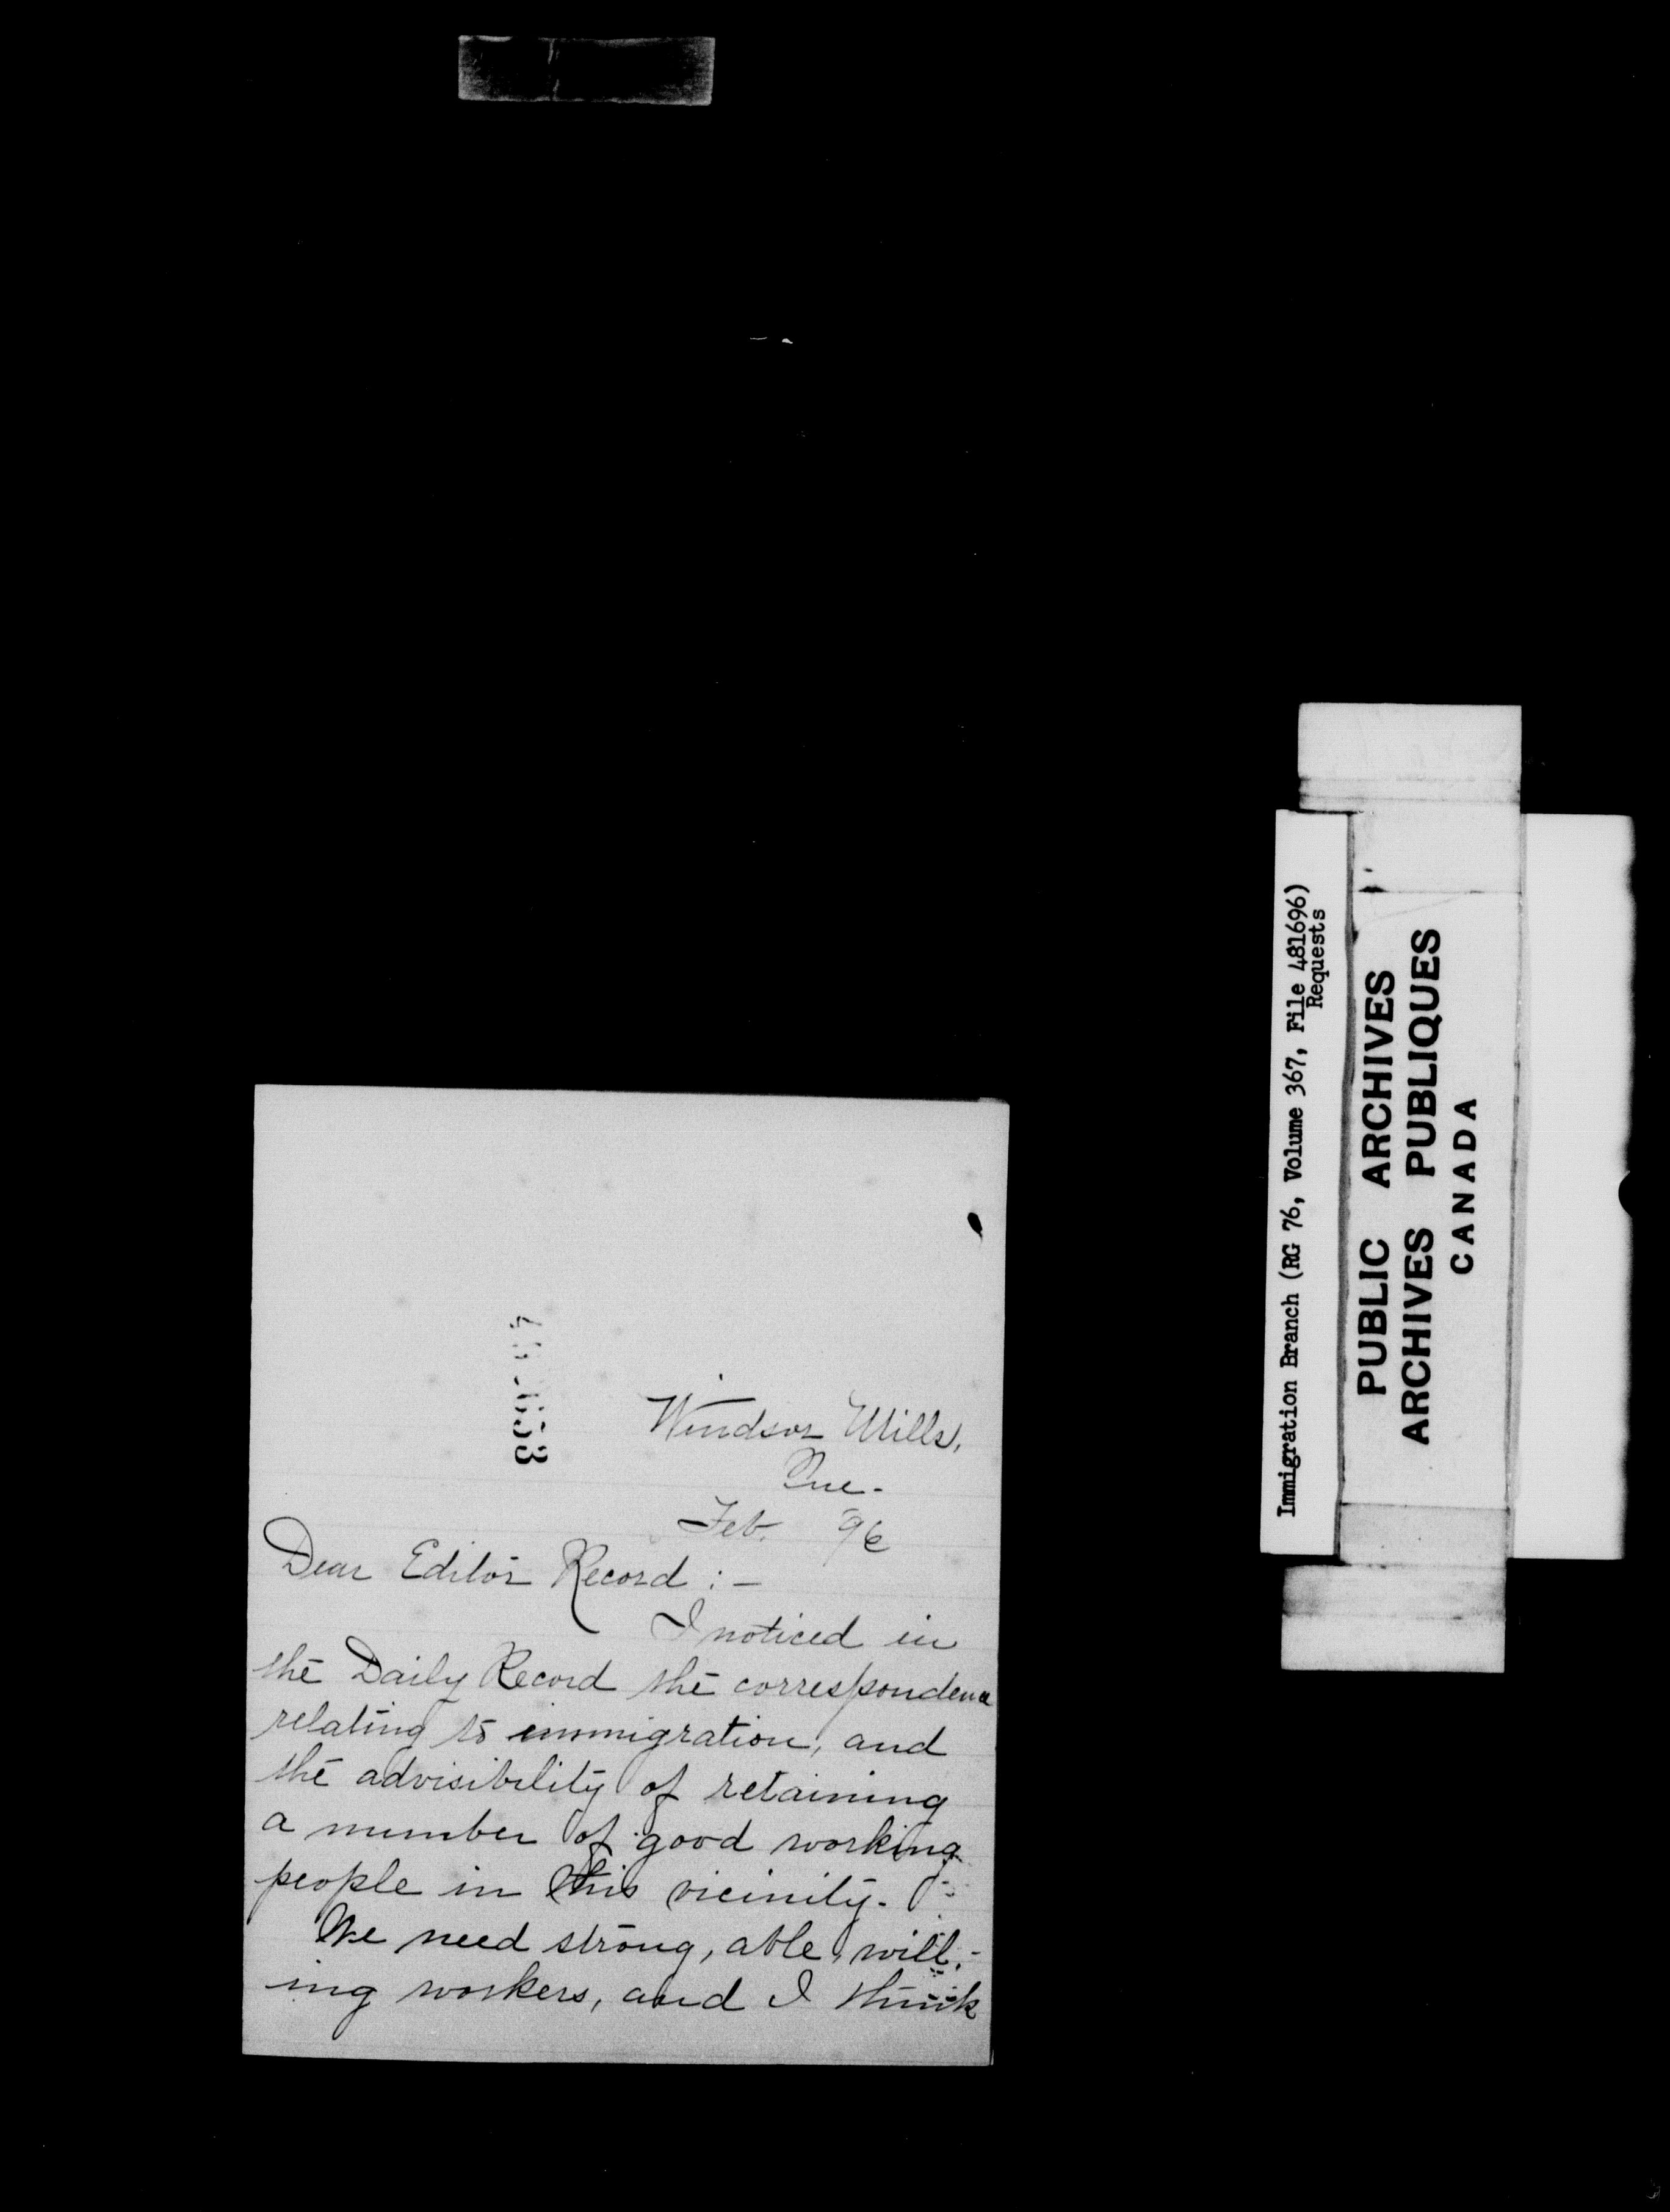 Windsor Mills,
Que.
Feb. 9
Dear Editor Record :—
I noticed in
the Daily Record the correspondence
relating to immigration, and
the advisibility of retaining
a number of good working
people in this vicinity.
We need strong, able, will-
ing workers, and I think
Immigration Branch (RG 76, Volume 367, File 481696)
Requests
PUBLIC ARCHIVES
ARCHIVES PUBLIQUES
CANADA